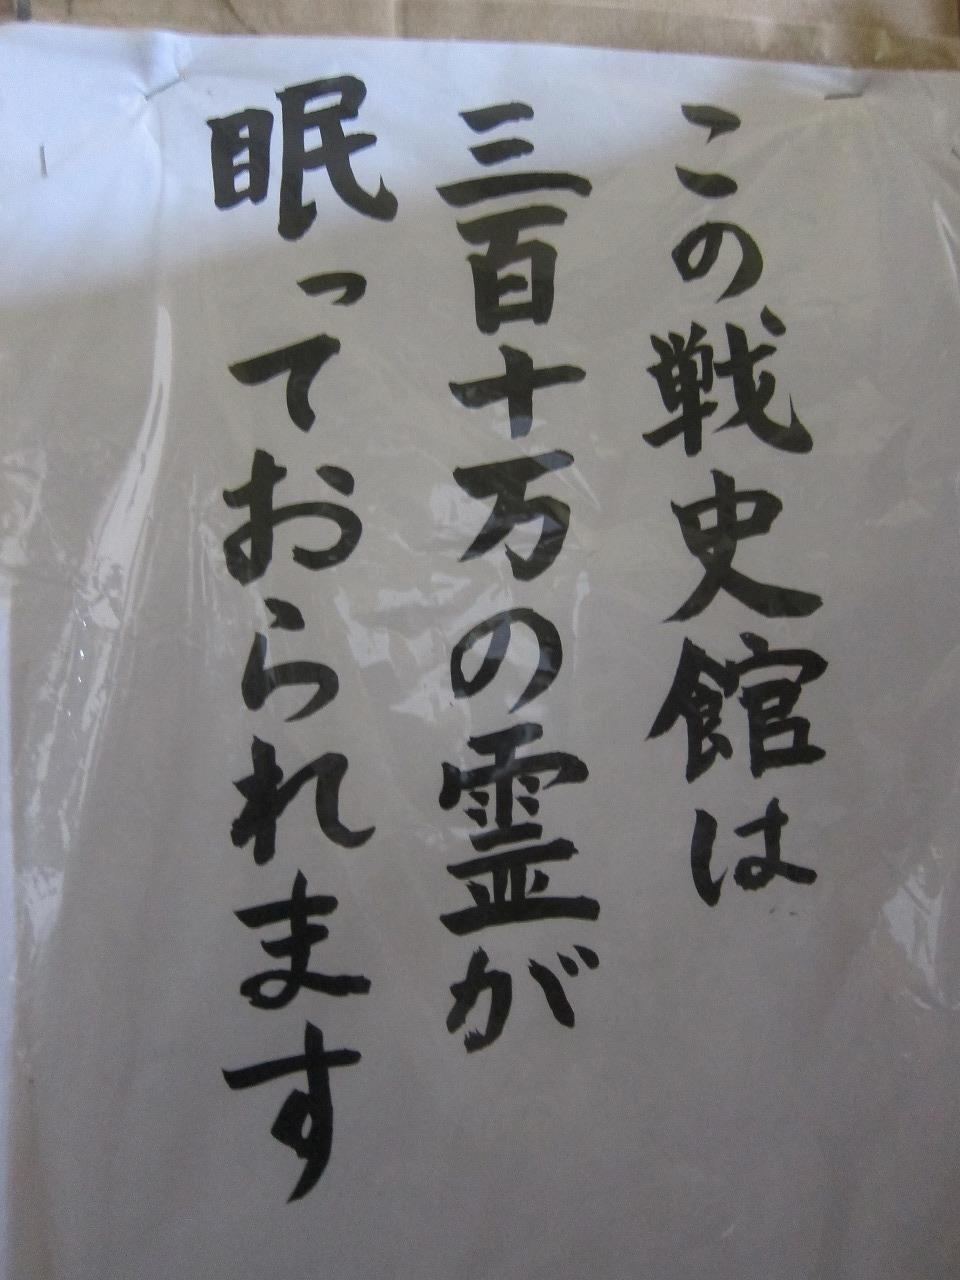 この戦史館は
三百十万の霊が
眠っておられます